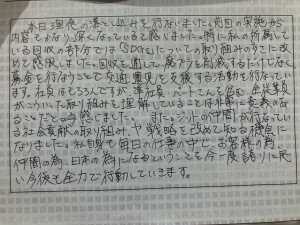 本日理念の落とし込みを行ないました。前回の実施から
内容もかなり深くなっていると感じました。特に私の所属して
いる回収の部分ではSDGsについての取り組みのすごさに改
めて感服しました。回収を通して廃プラを削減するだけでなく
募金を行なうことで交通遺児を支援する活動を行なっていま
す。社員はもちろんですが、準社員、パートさんを含む、全従業員
がこういった取り組みを理解していることは非常に意義のな
ることだなと今感じました。また、ジットの仲間が行なってい
る社会貢献の取り組み、や戦略を改めて知る機会に
なりました。私自身も毎日の仕事の中で、お客様の為、
仲間の為、日本の為になるということを今一度誇りに思
い今後も全力で行動していきます。